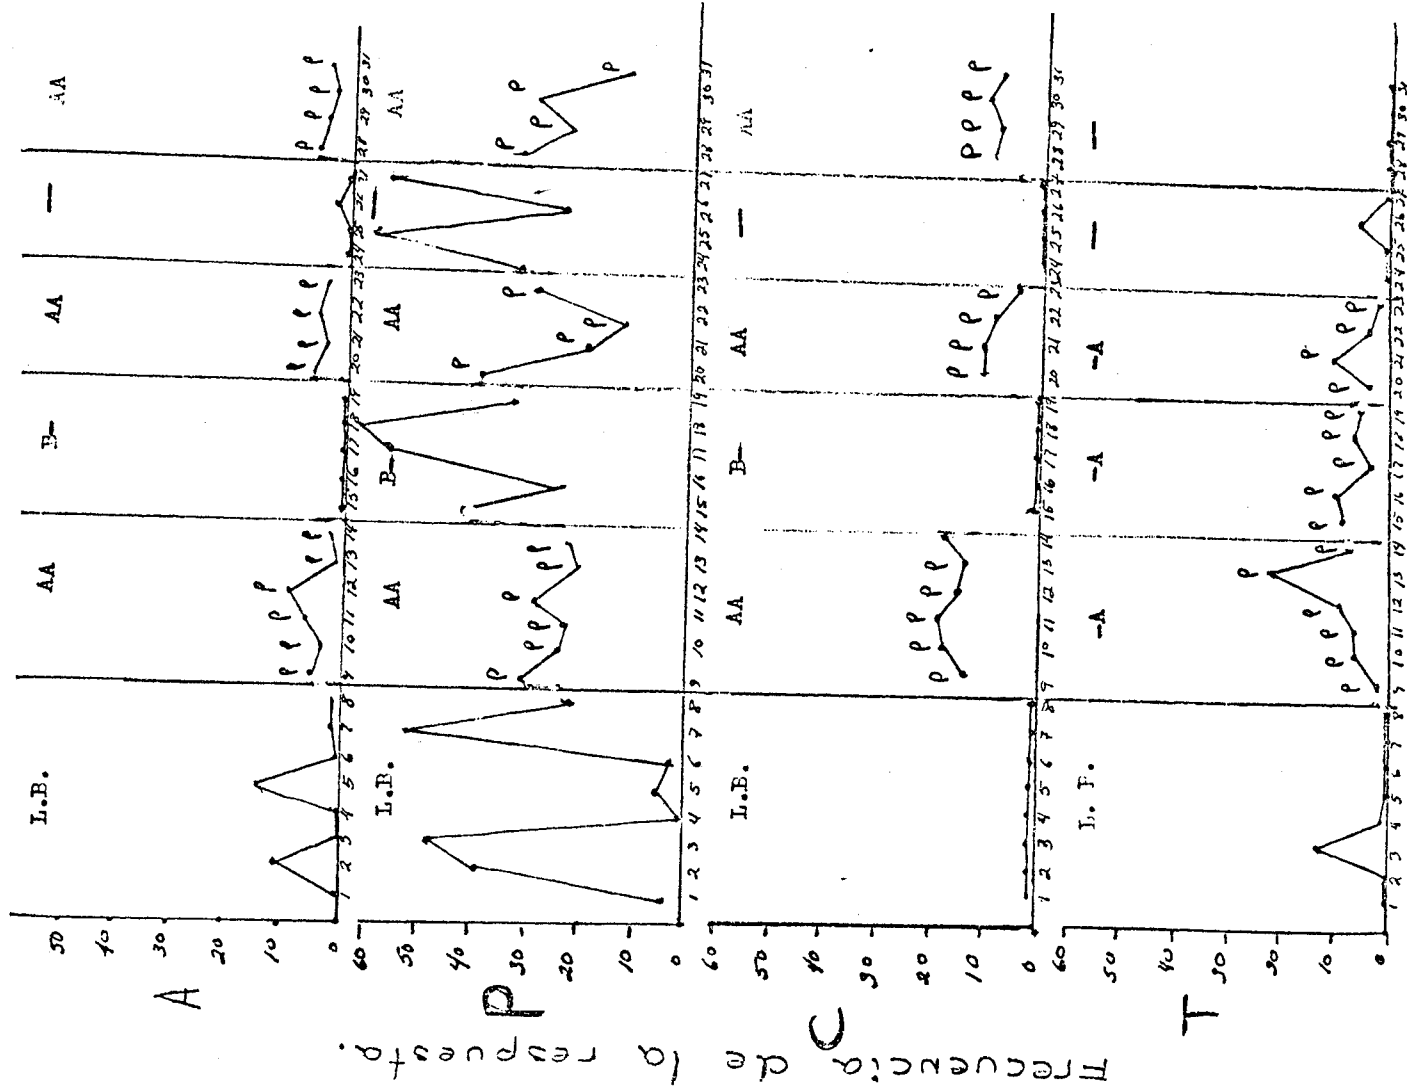 Frecuencia de la respuesta.
A
50
40
30
20
10
0
L.B. AA B— AA — AA
P P P P P P P P P P P P P P
1 2 3 4 5 6 7 8 9 10 11 12 13 14 15 16 17 18 19 20 21 22 23 24 25 26 27 28 29 30 31
P
60
50
40
30
20
10
0
L.B. AA B— AA — AA
P P P P P P P P P P P P P P
1 2 3 4 5 6 7 8 9 10 11 12 13 14 15 14 17 11 13 19 20 21 22 23 24 25 26 27 28 29 30 31
C
60
50
40
30
20
10
0
L.B. AA B— AA — AA
P P P P P P P P P P P P P
1 2 3 4 5 6 7 8 9 10 11 12 13 14 16 16 17 18 19 20 21 22 23 24 25 26 27 28 29 30 31
T
60
50
40
30
20
10
0
L. B. -A -A -A — —
P P P P P P P P P P P P P P
1 2 3 4 5 6 7 8 9 10 11 12 13 14 15 16 17 18 19 20 21 22 23 24 25 26 27 28 29 30 31